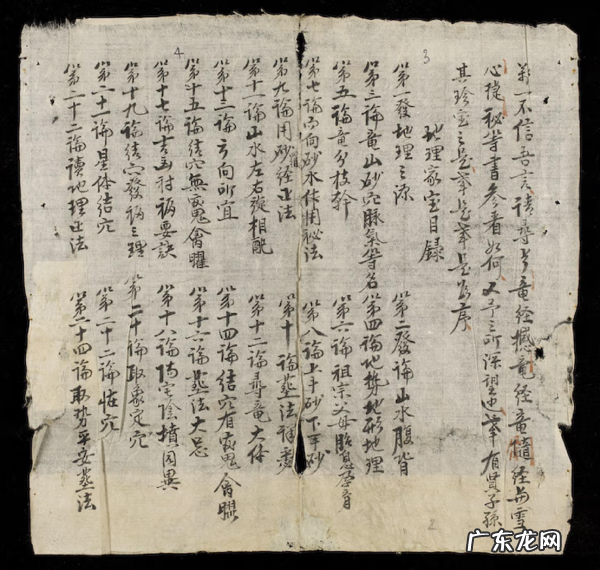 一不信吾言請尋竜经撼竜经竜髓经与雪
心秘等書参看如何又予之所深望也峯有貴子孫
其珍重之是峯是峯是為序
3
地理家宝目錄
第一發地理之源 第二發論山水腹背
第三論竜山砂穴脉氣等名 第四論地势地形地理
第五論竜分枝幹 第六論祖宗父母胎息孕育
第七論向砂水体用秘法 第八論上手砂下手砂
第九論用砂経正法 第十論葬法
第十一論山水左右旋相配 第十二論尋竜大体
4
第十三論方向所宜 第十四論结穴有鬼會曜
第十五論结穴無鬼會曜 第十六論葬法大忌
第十七論吉凶禍要訣 第十八論陽宅陰墳同異
第十九論结穴發之理 第二十論取定穴
第二十一論星体结穴 第二十二論怪穴
第二十二論讀地理正法 第二十四論取势平安葬法
2
广东龙网